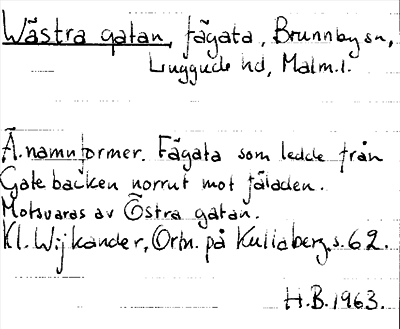 Wästra gatan, fägata, Brunnby sn,
Luggude hd, Malm.l.
Ä. namnformer. Fägata som ledde från
Gatebacken norrut mot fäladen.
Motsvaras av Östra gatan.
Kl. Wijkander, Ortn. på Kullaberg, s. 62.
H.B. 1963.